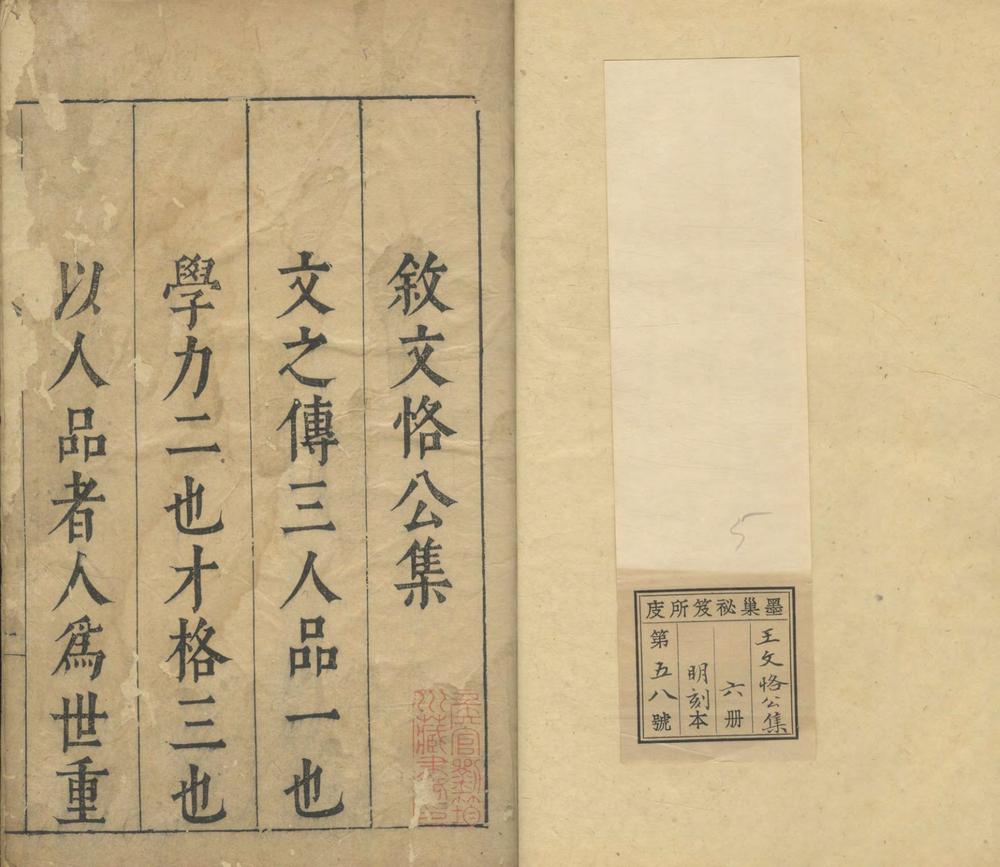 墨巢祕笈所庋
王文恪公集
六册
明刻本
第五八號
5
敘文恪公集
文之傳三人品一也
學力二也才格三也
以人品者人爲世重